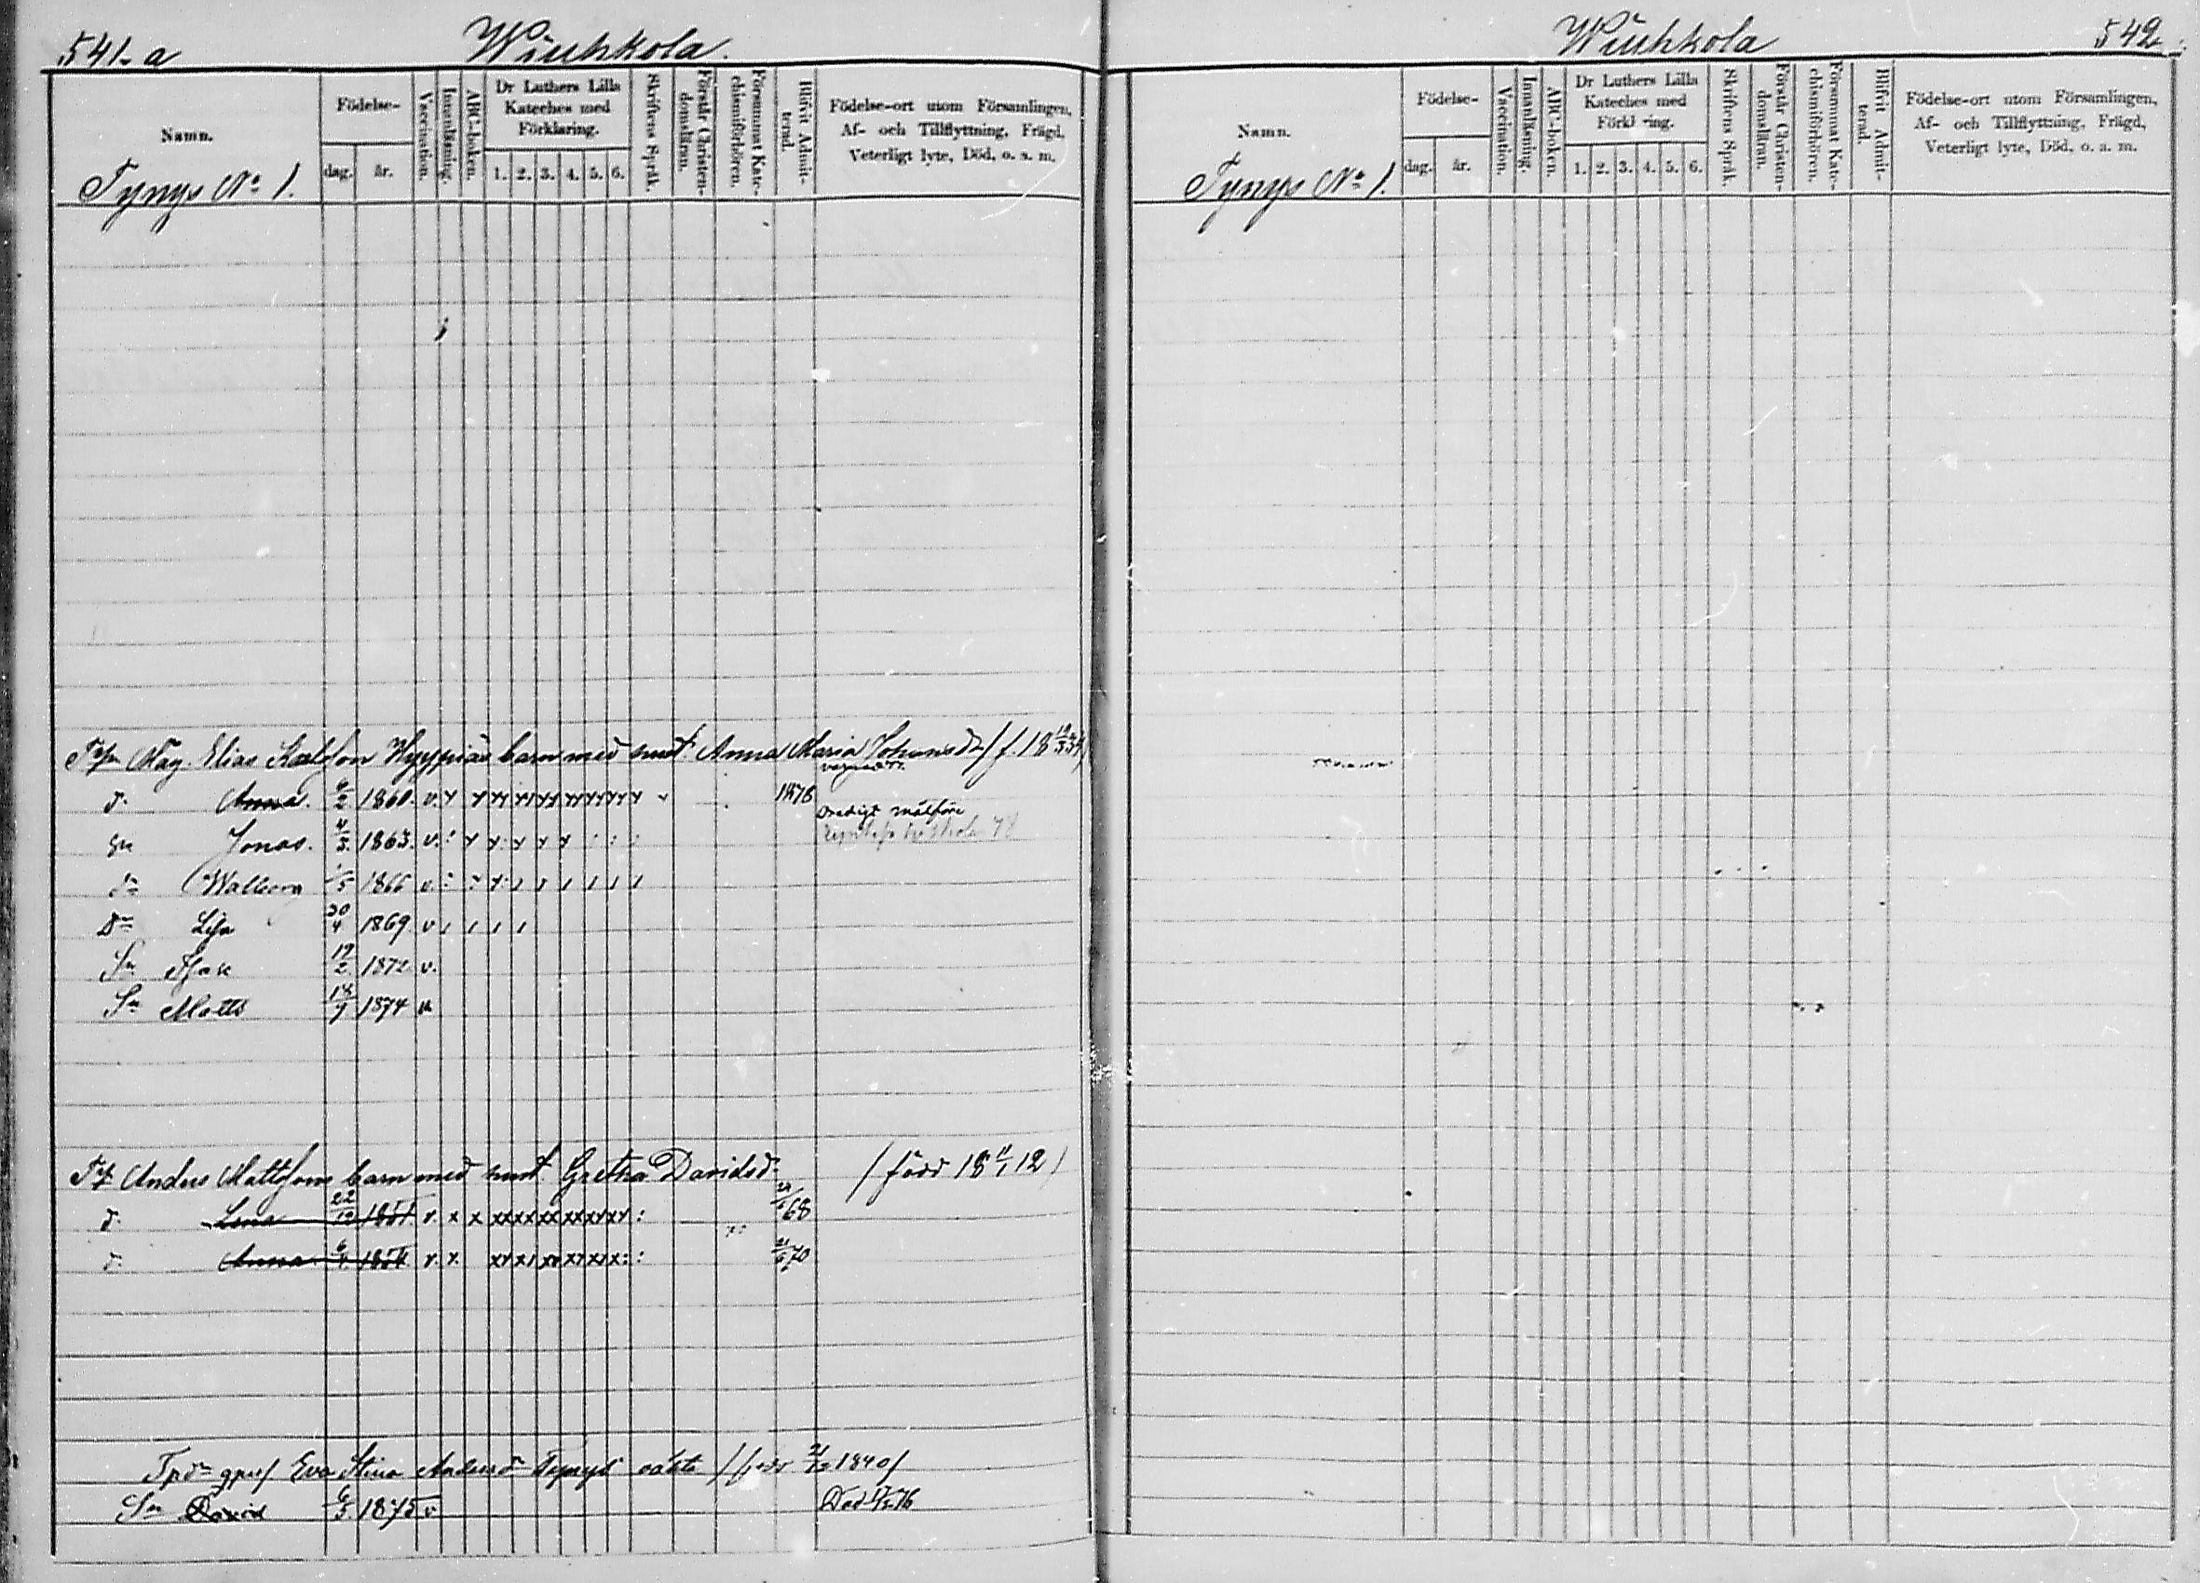 541-a Wiuhkola.
Namn.
Födelse-
dag.
år.
Vaccination.
Innanläsning.
ABC-boken.
Dr Luthers Lilla
Kateches med
Förklaring.
1. 2. 3. 4. 5. 6.
Skriftens Språk.
Förstår Christen-
domsläran.
Försummat Kate-
chismiförhören.
Blifvit Admit-
terad.
Födelse-ort utom Församlingen,
Af- och Tillflyttning, Frägd,
Veterligt lyte, Död, o. s. m.
Tynys No 1.
Elias Hyypiäs barn med hust. Anna Maria Johansdr /f. 18
d. Anna. 1860. v. 1878
sn Jonas. 4/3 1863. v.
Oredigt målföre
dr Walborg 1866 v.
Dr Lisa 30/4 1869 v
Sn 19/2 1872 v.
Sn Matts 18/7 1874
Anders Mattssons barn med hust. Gretha Davidsdr (född 18 11/1 12)
d. Lena 22/10 1851 v. x x xx xx xx xx xx xx : 68
d. Anna 1854 v. x. 70
Eva Stina Andersdr född 21/12 1840/
Sn David 6/3 1875 v Död 76
Wiuhkola 542
Namn.
Födelse-
dag.
år.
Vaccination.
Innanläsning.
ABC-boken.
Dr Luthers Lilla
Kateches med
Förkl ring.
1. 2. 3. 4. 5. 6.
Skriftens Språk.
Förstår Christen-
domsläran.
Försummat Kate-
chismiförhören.
Blifvit Admit-
terad.
Födelse-ort utom Församlingen,
Af- och Tillflyttning, Frägd,
Veterligt lyte, Död, o. s. m.
Tynys No 1.